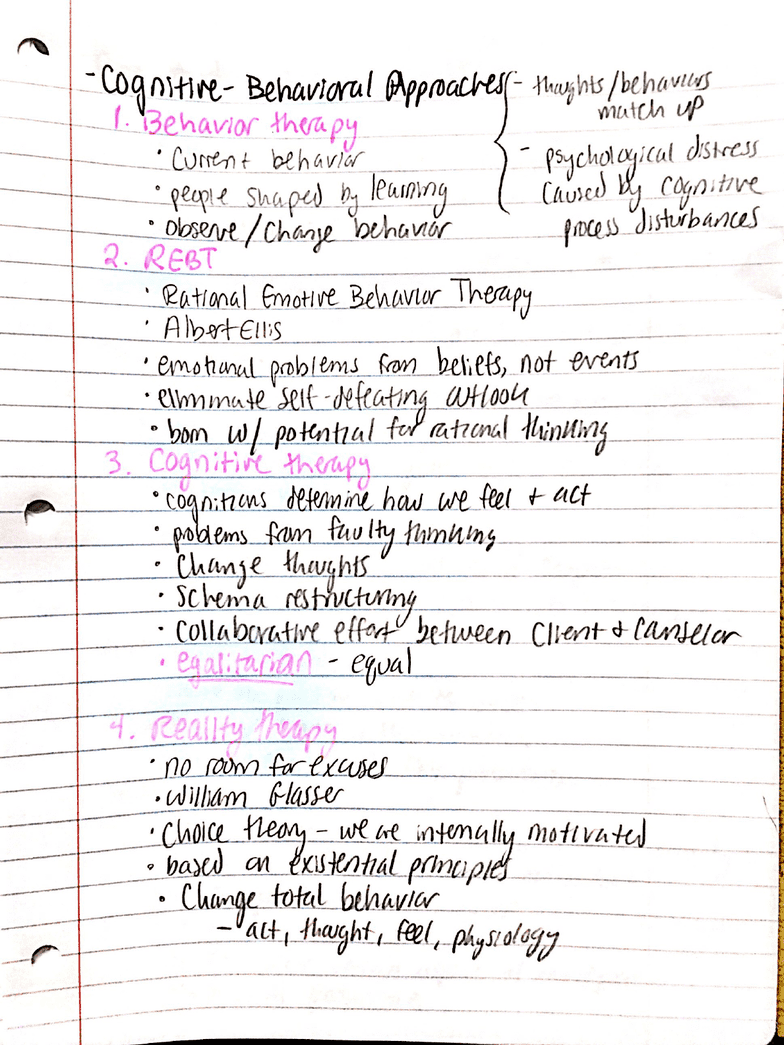 - Cognitive - Behavioral Approaches
- thoughts/behaviors
match up
- psychological distress
caused by cognitive
process disturbances
1. Behavior therapy
• Current behavior
• people shaped by learning
• observe/change behavior
2. REBT
• Rational Emotive Behavior Therapy
• Albert Ellis
• emotional problems from beliefs, not events
• eliminate self-defeating outlook
• born w/ potential for rational thinking
3. Cognitive therapy
• cognitions determine how we feel + act
• problems from faulty thinking
• Change thoughts
• Schema restructuring
• collaborative effort between client + counselor
• egalitarian - equal
4. Reality therapy
• no room for excuses
• William Glasser
• Choice theory - we are internally motivated
• based on existential principles
• Change total behavior
- act, thought, feel, physiology